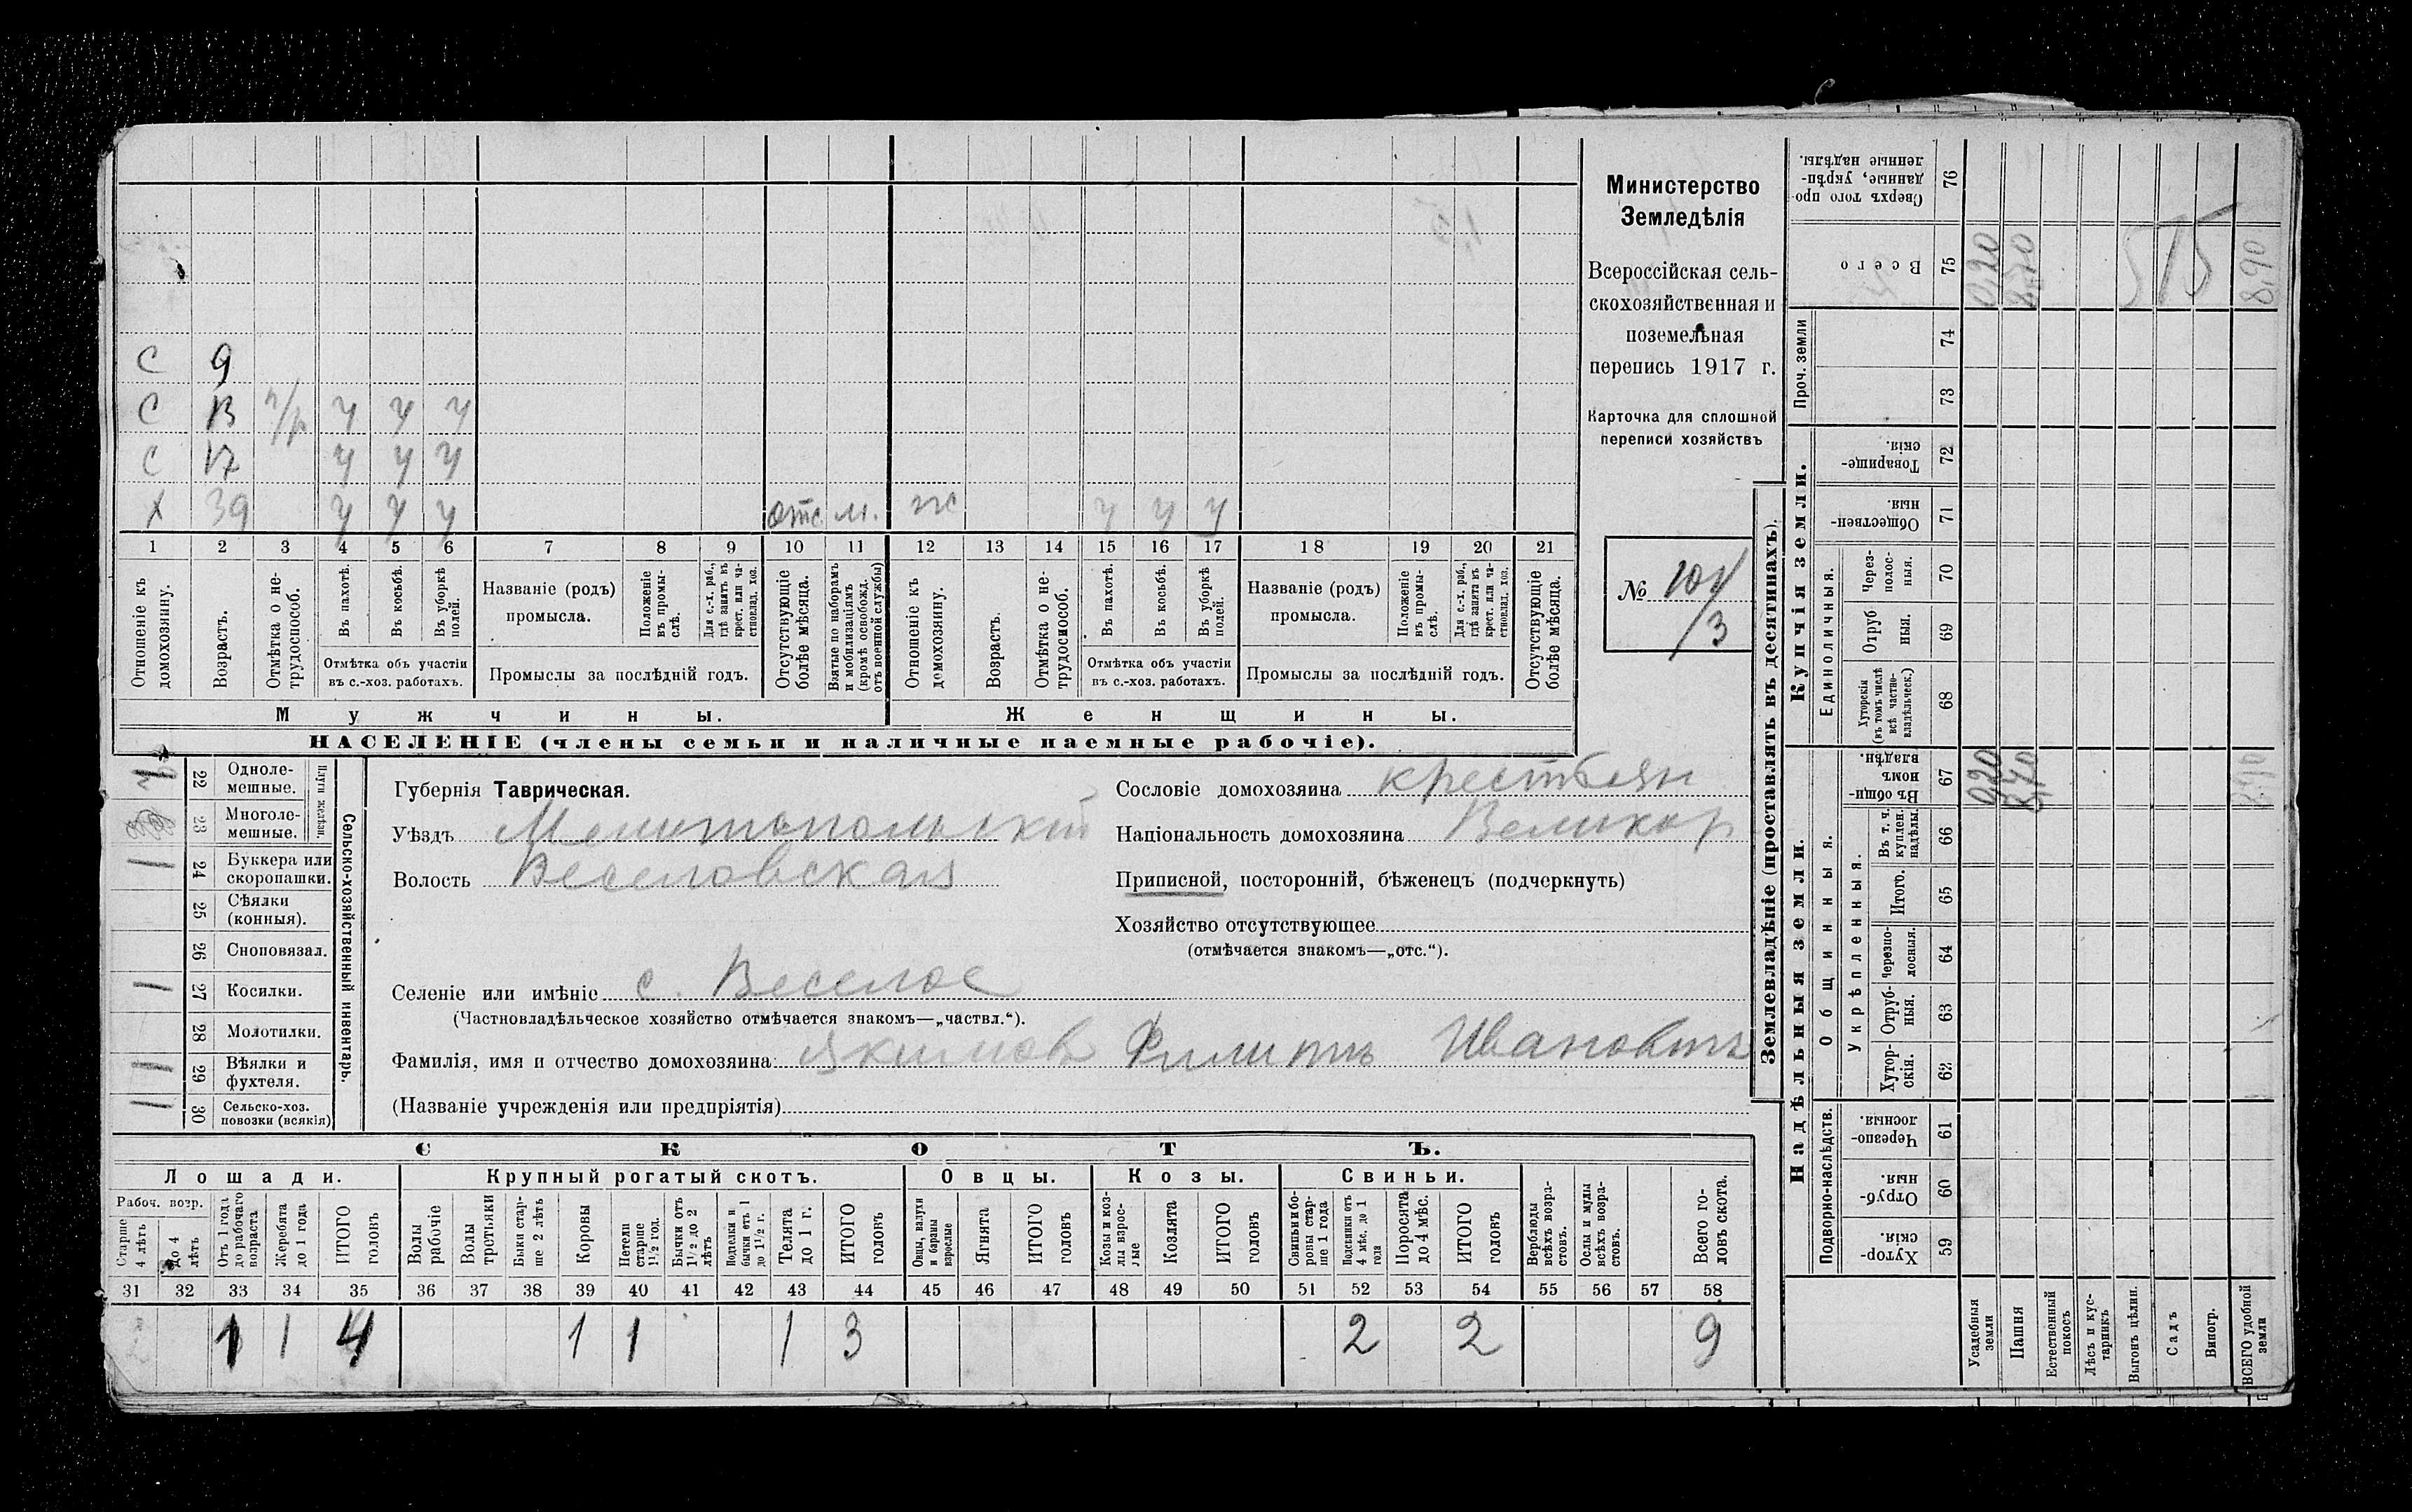 С 9
С 13 н/р У У У
С 17 У У У
Х 39 У У У отс м. ж У У У
1 2 3 4 5 6 7 8 9 10 11 12 13 14 15 16 17 18 19 20 21
Отношеніе къ домохозяину.
Возрастъ.
Отмѣтка о нетрудоспособ.
Въ пахотѣ.
Въ косьбѣ.
Въ уборкѣ полей.
Отмѣтка объ участіи
въ с.-хоз. работахъ.
Названіе (родъ)
промысла.
Положеніе въ промыслѣ.
Для с.-х. раб., гдѣ занятъ въ крест. или частновлад. хоз.
Промыслы за послѣдній годъ.
Отсутствующіе болѣе мѣсяца.
Взятые по наборамъ и мобилизаціямъ (кромѣ освобожд. отъ военной службы)
Отношеніе къ домохозяину.
Возрастъ.
Отмѣтка о нетрудоспособ.
Въ пахотѣ.
Въ косьбѣ.
Въ уборкѣ полей.
Отмѣтка объ участіи
въ с.-хоз. работахъ.
Названіе (родъ)
промысла.
Положеніе въ промыслѣ.
Для с.-х. раб., гдѣ занята въ крест. или частновлад. хоз.
Промыслы за послѣдній годъ.
Отсутствующіе болѣе мѣсяца.
Мужчины.
Женщины.
НАСЕЛЕНІЕ (члены семьи и наличные наемные рабочіе).
Министерство
Земледѣлія
Всероссійская сель-
скохозяйственная и
поземельная
перепись 1917 г.
Карточка для сплошной
переписи хозяйствъ
№ 104
/3
22 Одноле-
мешные.
23 Многоле-
мешные.
Плуги желѣзн.
1 24 Буккера или
скоропашки.
25 Сѣялки
(конныя).
26 Сноповязал.
1 27 Косилки.
28 Молотилки.
29 Вѣялки и
фухтеля.
30 Сельско-хоз.
повозки (всякія)
Сельско-хозяйственный инвентарь.
Губернія Таврическая.
Уѣздъ Мелитопольскій
Волость Веселовская
Сословіе домохозяина крестьян
Національность домохозяина Великор
Приписной, посторонній, бѣженецъ (подчеркнуть)
Хозяйство отсутствующее
(отмѣчается знакомъ—„отс.“).
Селеніе или имѣніе с. Веселое
(Частновладѣльческое хозяйство отмѣчается знакомъ—„частвл.“).
Фамилія, имя и отчество домохозяина: Якимов Филиппъ Ивановичъ
(Названіе учрежденія или предпріятія)
СКОТЪ.
Лошади. Крупный рогатый скотъ. Овцы. Козы. Свиньи.
Рабоч. возр.
Старше 4 лѣтъ
до 4 лѣтъ
Отъ 1 года до рабочаго возраста
Жеребята до 1 года
ИТОГО головъ
Волы рабочіе
Волы третьяки
Быки старше 2 лѣтъ
Коровы
Нетели старше 1½ год.
Бычки отъ 1½ до 2 лѣтъ
Подтелки и бычки отъ 1 до 1½ г.
Телята до 1 г.
ИТОГО головъ
Овцы, валухи и бараны взрослые
Ягнята
ИТОГО головъ
Козы и козлы взрослые
Козлята
ИТОГО головъ
Свиньи и боровы старше 1 года
Подсвинки отъ 4 мѣс. до 1 года
Поросята до 4 мѣс.
ИТОГО головъ
Верблюды всѣхъ возрастовъ.
Ослы и мулы всѣхъ возрастовъ.
Всего головъ скота.
31 32 33 34 35 36 37 38 39 40 41 42 43 44 45 46 47 48 49 50 51 52 53 54 55 56 57 58
1 1 4 1 1 1 3 2 2 9
Землевладѣніе (проставлять въ десятинахъ).
Надѣльныя земли.
Купчія земли.
Проч. земли
Подворно-наслѣдств.
Общинныя.
Укрѣпленныя.
Единоличныя.
Хуторскія. 59
Отрубныя. 60
Черезполосныя. 61
Хуторскія. 62
Отрубныя. 63
Черезполосныя. 64
Итого. 65
Въ т. ч. куплен. надѣлы. 66
Въ общинномъ владѣн. 67 0,20 8,70
Хуторскія (въ томъ числѣ всѣ частновладѣльческ.) 68
Отрубныя. 69
Черезполосныя. 70
Общественныя. 71
Товарищескія. 72
73
74
Всего 75 0,20 8,70 515 8,90
Сверхъ того проданные, укрѣпленные надѣлы. 76
Усадебныя земли
Пашня
Естественный покосъ
Лѣсъ и кустарникъ
Выгонъ цѣлин.
Садъ
Виногр.
ВСЕГО удобной земли